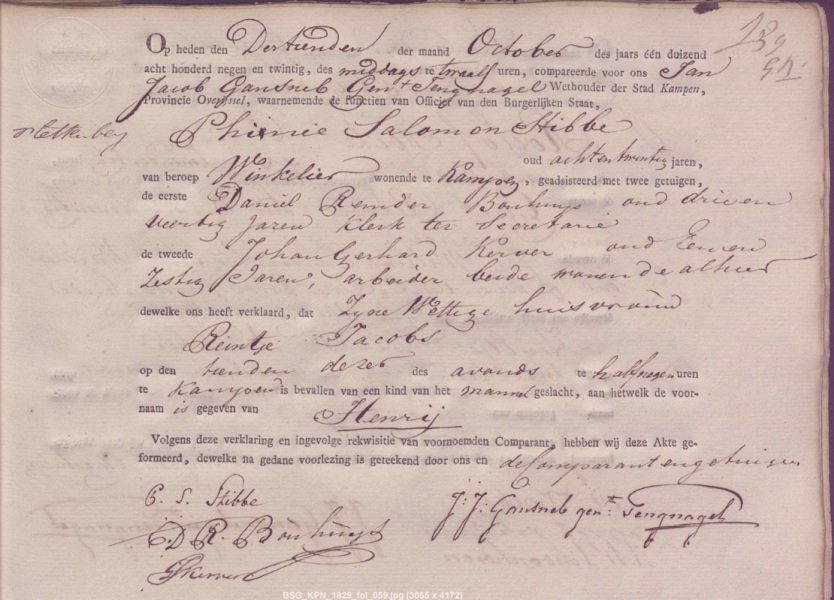 132
Op heden den Dertienden der maand October des jaars één duizend
acht honderd negen en twintig, des middags te twaalf uren, compareerde voor ons Jan
Jacob Gansneb Gent Tengnagel Wethouder der Stad Kampen,
Provincie Overijssel, waarnemende de functien van Officier van den Burgerlijken Staat,
Phinie Salomon Stibbe
oud achtentwintig jaren,
van beroep Winkelier wonende te Kampen, geadsisteerd met twee getuigen,
de eerste Daniel Remder Bouhuys oud drieen
veertig Jaren Klerk ter Secretarie
de tweede Johan Gerhard Kerver oud Eenen
Zestig Jaren, arbeider beide wonende alhier
dewelke ons heeft verklaard, dat Zyne Wettige huisvrouw
Reintje Jacobs
op den tienden dezer des avonds te half negen uren
te Kampen is bevallen van een kind van het mannel geslacht, aan hetwelk de voor-
naam is gegeven van Henrij
Volgens deze verklaring en ingevolge rekwisitie van voornoemden Comparant, hebben wij deze Akte ge-
formeerd, dewelke na gedane voorlezing is geteekend door ons en de Comparant en getuigen
P. S. Stibbe
J: J: Gansneb gent Tengnagel
D R. Bouhuys
JGKerver
BSG_KPN_1829_fol_059.jpg (3065 x 4172)